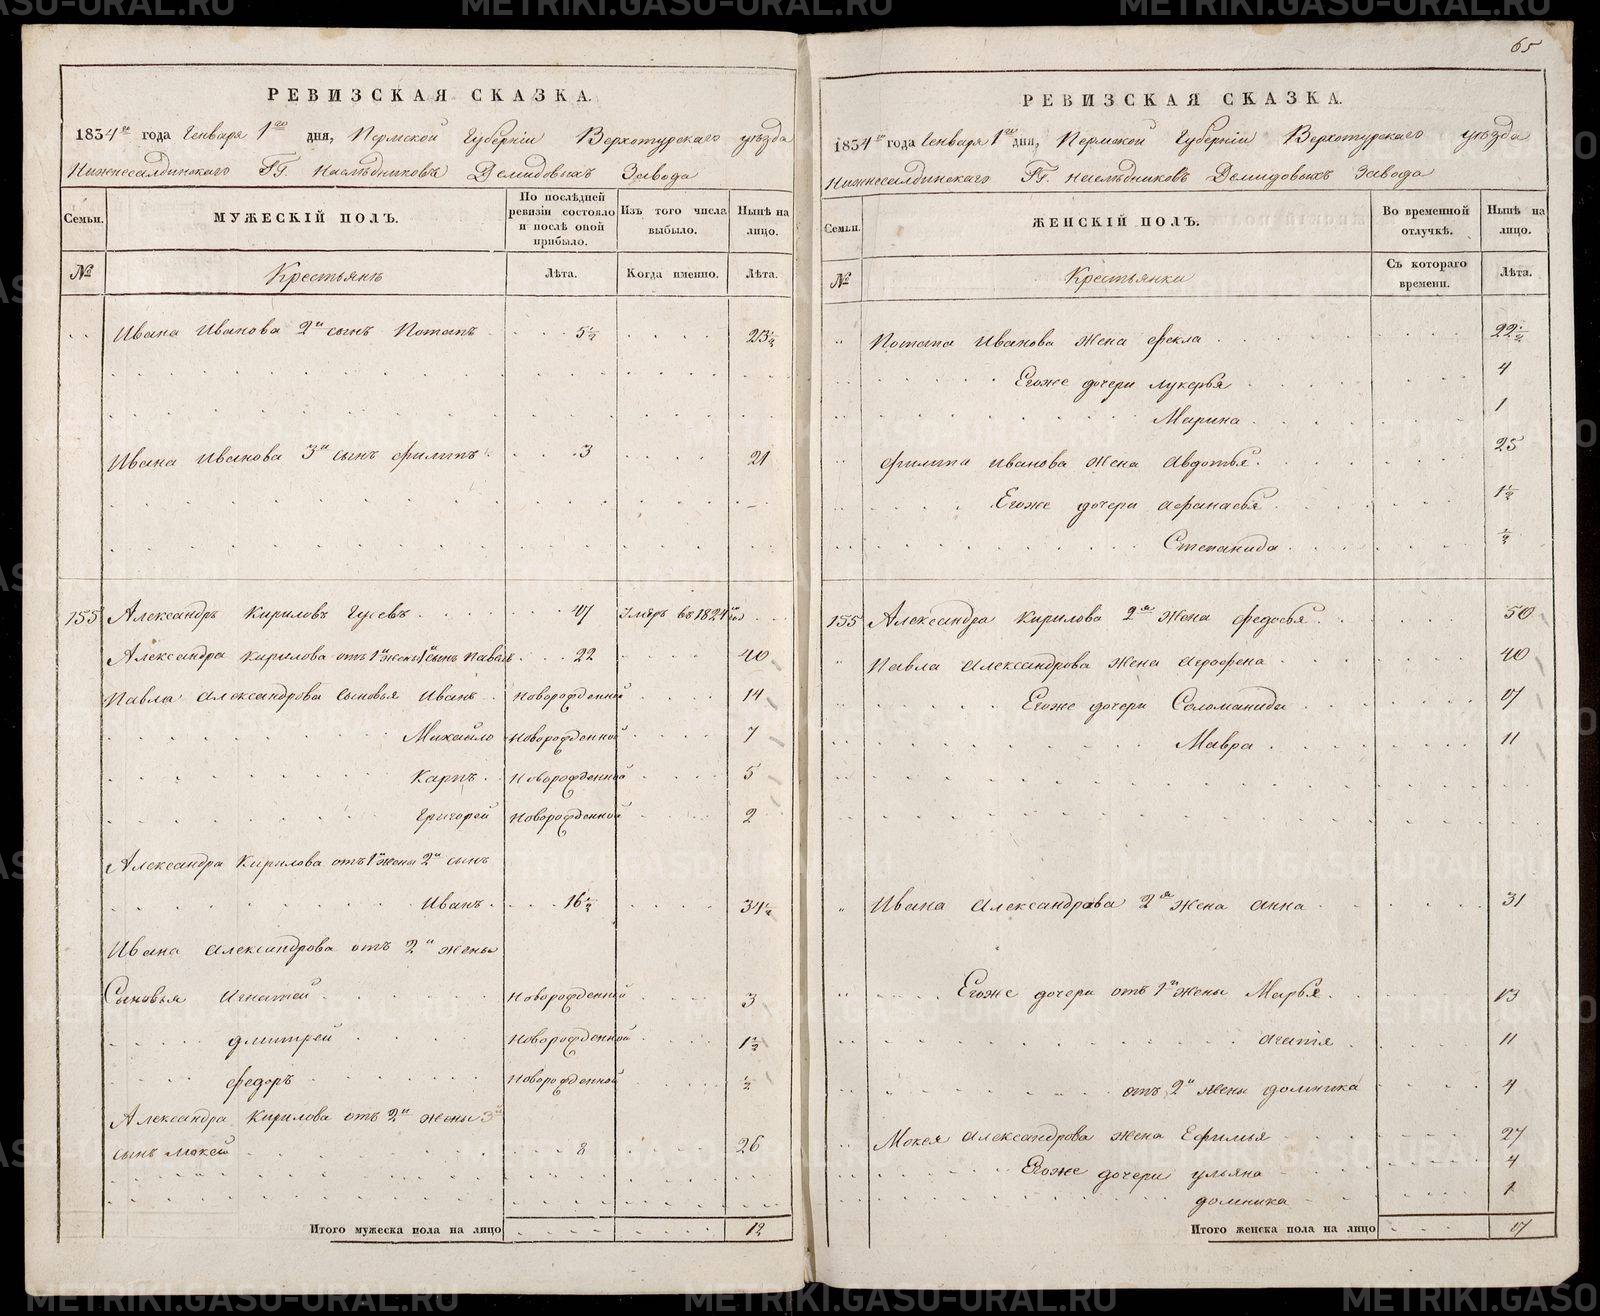 65
РЕВИЗСКАЯ СКАЗКА.
1834го года Генваря 1го дня, Пермской Губернiи Верхотурскаго уѣзда
Нижнесалдинскаго ГГ. наслѣдниковъ Демидовыхъ Завода
Семьи.
МУЖЕСКІЙ ПОЛЪ.
По послѣдней ревизіи состояло и послѣ оной прибыло.
Изъ того числа выбыло.
Нынѣ на лицо.
№
Крестьянъ
Лѣта.
Когда именно.
Лѣта.
Ивана Иванова 2й сынъ Потапъ 5½ 23½
Ивана Иванова 3й сынъ филипъ 3 21
155 Александръ Кириловъ Гусевъ 47 Умеръ въ 1824м
Александра Кирилова отъ 1й жены 1й сынъ Павелъ 22 40
Павла Александрова сыновья Иванъ Новорожденной 14
Михайло Новорожденной 7
Карпъ Новорожденной 5
Григорей Новорожденной 2
Александра Кирилова отъ 1й жены 2й сынъ
Иванъ 16½ 34½
Ивана Александрова отъ 2й жены
Сыновья Игнатей Новорожденной 3
дмитрей Новорожденной 1½
федоръ Новорожденной ½
Александра Кирилова отъ 2й жены 3й
сынъ Мокей 8 26
Итого мужеска пола на лицо 12
РЕВИЗСКАЯ СКАЗКА.
1834го года Генваря 1го дня, Пермской Губернiи Верхотурскаго уѣзда
Нижнесалдинскаго ГГ. наслѣдниковъ Демидовыхъ Завода
Семьи.
ЖЕНСКІЙ ПОЛЪ.
Во временной отлучкѣ.
Нынѣ на лицо.
№
Крестьянки
Съ котораго времени.
Лѣта.
Потапа Иванова жена фекла 22½
Егоже дочери лукерья 4
Марина 1
филипа Иванова жена Авдотья 25
Егоже дочери Афанасья 1½
Степанида ½
155 Александра Кирилова 2я жена федосья 50
Павла Александрова жена Аграфена 40
Егоже дочери Соломанида 17
Мавра 11
Ивана Александрова 2я жена Анна 31
Егоже дочери отъ 1й жены Марья 13
Агапія 11
отъ 2й жены домника 4
Мокея Александрова жена Ефимья 27
Егоже дочери ульяна 4
домника 1
Итого женска пола на лицо 17